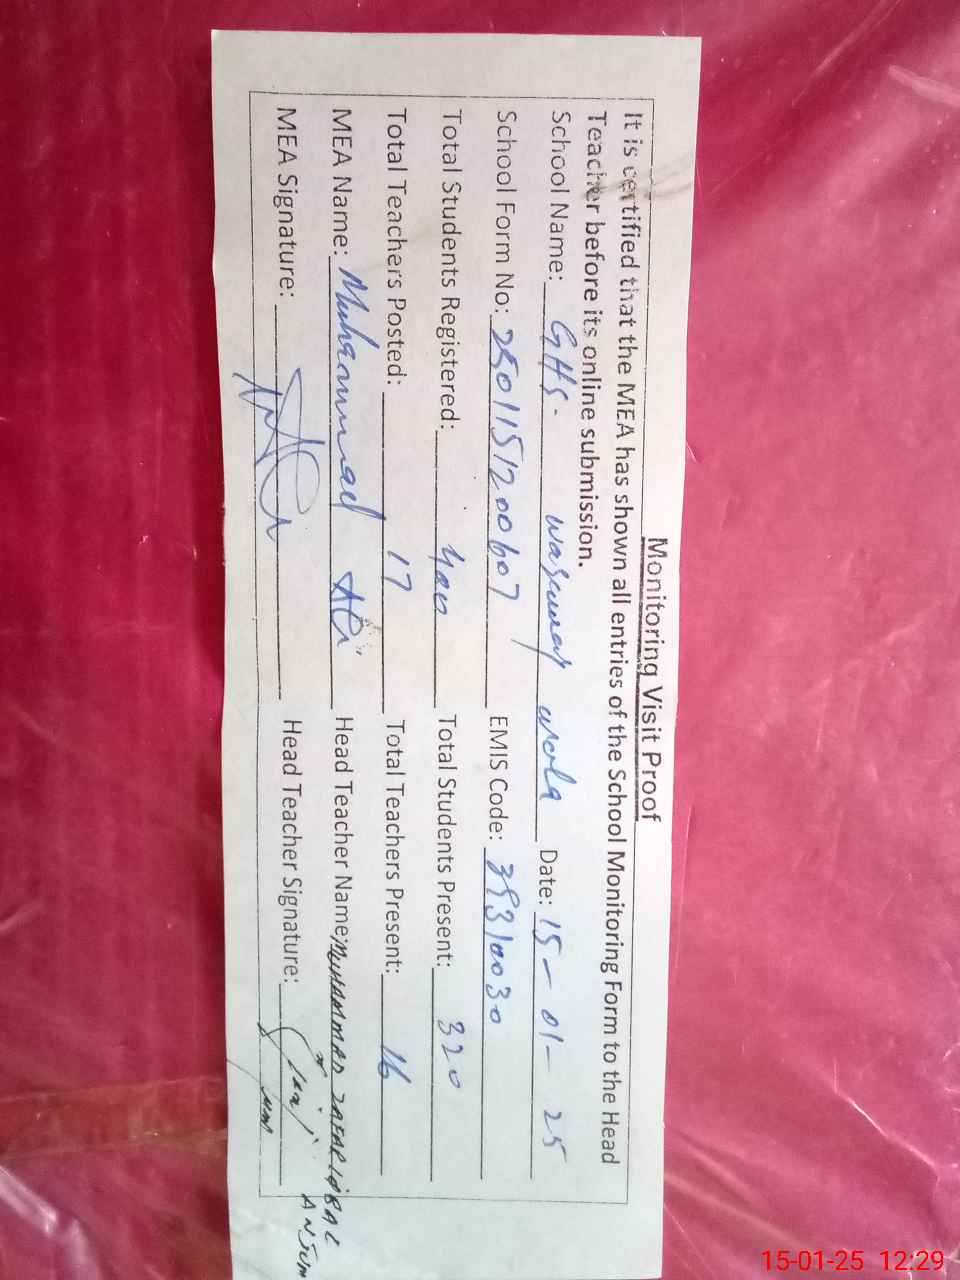 Monitoring Visit Proof
It is certified that the MEA has shown all entries of the School Monitoring Form to the Head
Teacher before its online submission.
School Name: GHS. wala Date: 15-01-25
School Form No: 2501151200607 EMIS Code: 39310030
Total Students Registered: 400 Total Students Present: 320
Total Teachers Posted: 17 Total Teachers Present: 16
MEA Name: Muhammad Ali Head Teacher Name: MUHAMMAD ZAFAR IQBAL
ANJUM
MEA Signature: Head Teacher Signature:
15-01-25 12:29